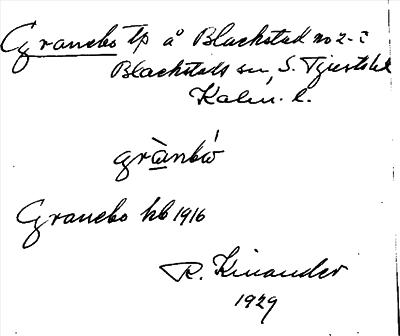 Granebo tp å Blackstad no 2 i
Blackstads sn, S. Tjusts hd
Kalm. l.
grànbó
Granebo hb 1916
R. Kinander
1929